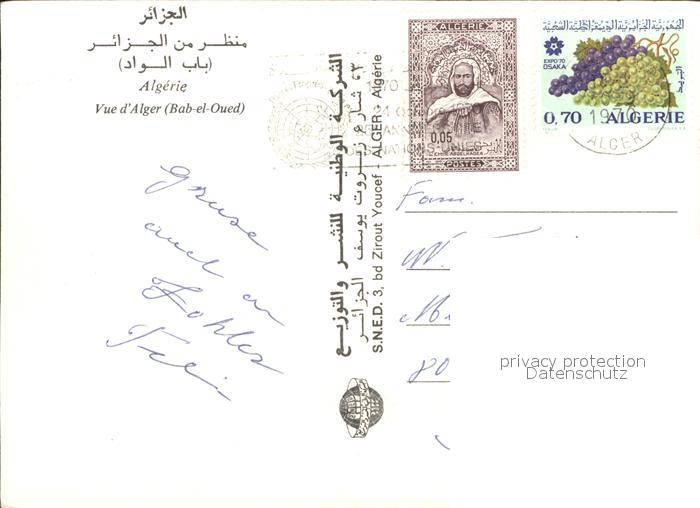 الجزائر
منظر من الجزائر
(باب الواد)
Algérie
Vue d'Alger (Bab-el-Oued)
Grüsse
auch an
الشركة الوطنية للنشر والتوزيع
٣ شارع زيروت يوسف الجزائر
S.N.E.D. 3, bd Zirout Youcef - ALGER - Algérie
ALGERIE
0,05
ABDELKADER
POSTES
الجمهورية الجزائرية الديمقراطية الشعبية
EXPO'70
OSAKA
البريد
0,70 ALGERIE
1970
ALGER
NATIONS UNIES
Fam.
W.
M.
80
privacy protection
Datenschutz